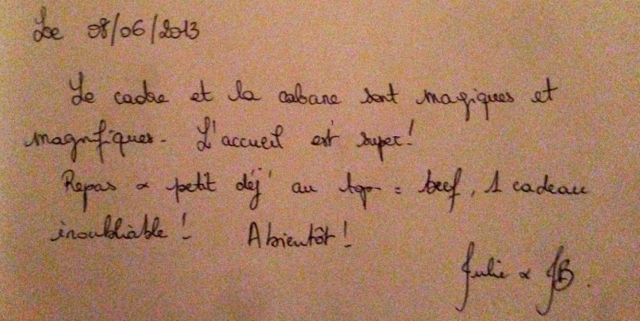 Le 08/06/2013
Le cadre et la cabane sont magiques et
magnifiques. L'accueil est super!
Repas & petit déj' au top = bref, 1 cadeau
inoubliable! A bientôt!
Julie & JB.